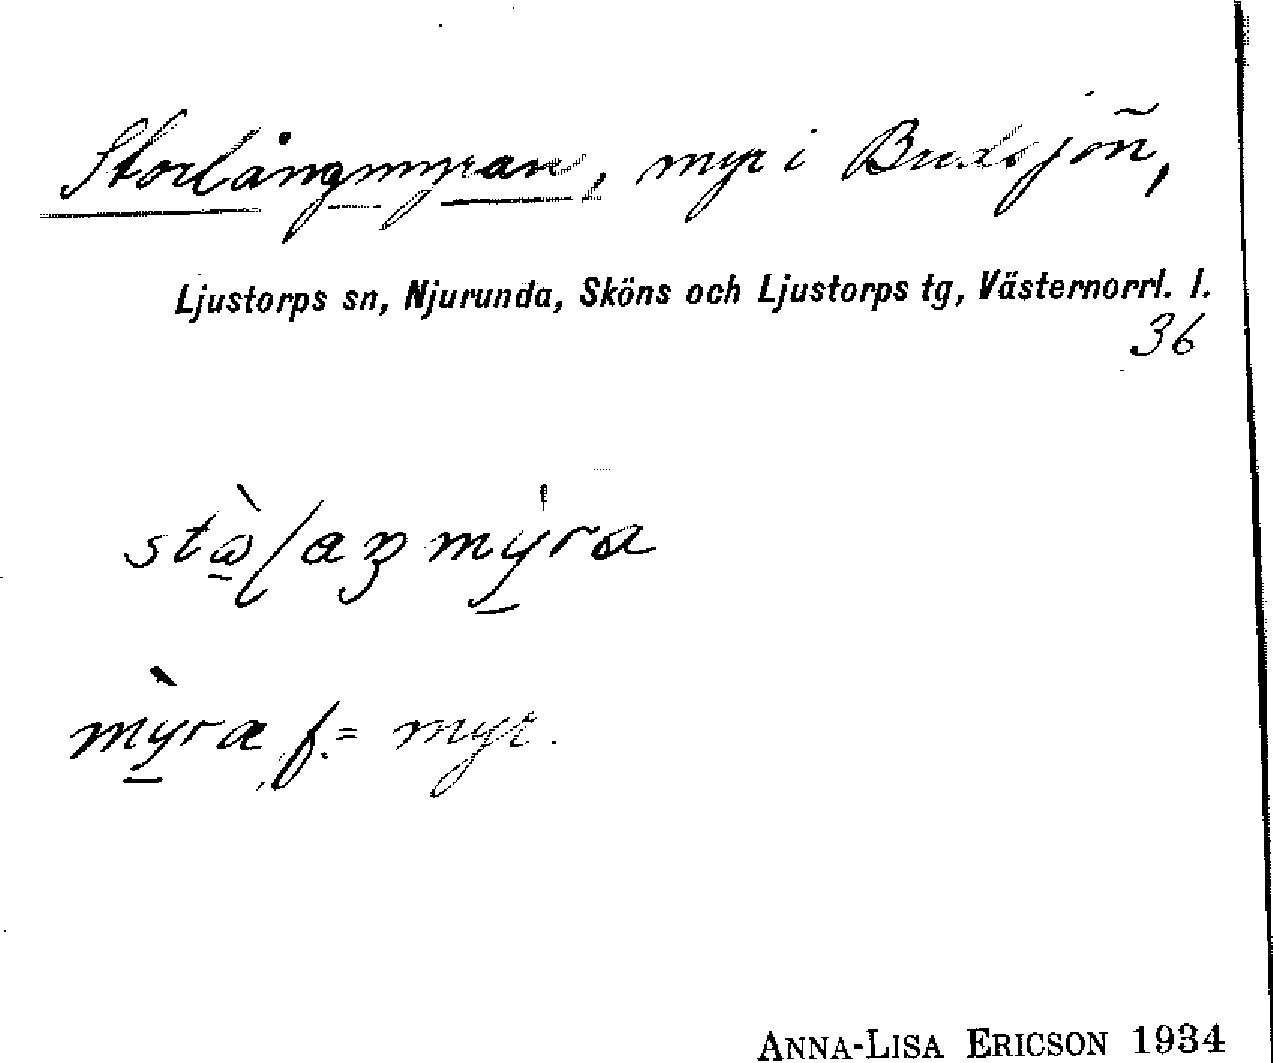 Storlångmyran, myr i Bredsjön,
Ljustorps sn, Njurunda, Sköns och Ljustorps tg, Västernorrl. l.
36
myra f. = myr.
ANNA-LISA ERICSON 1934